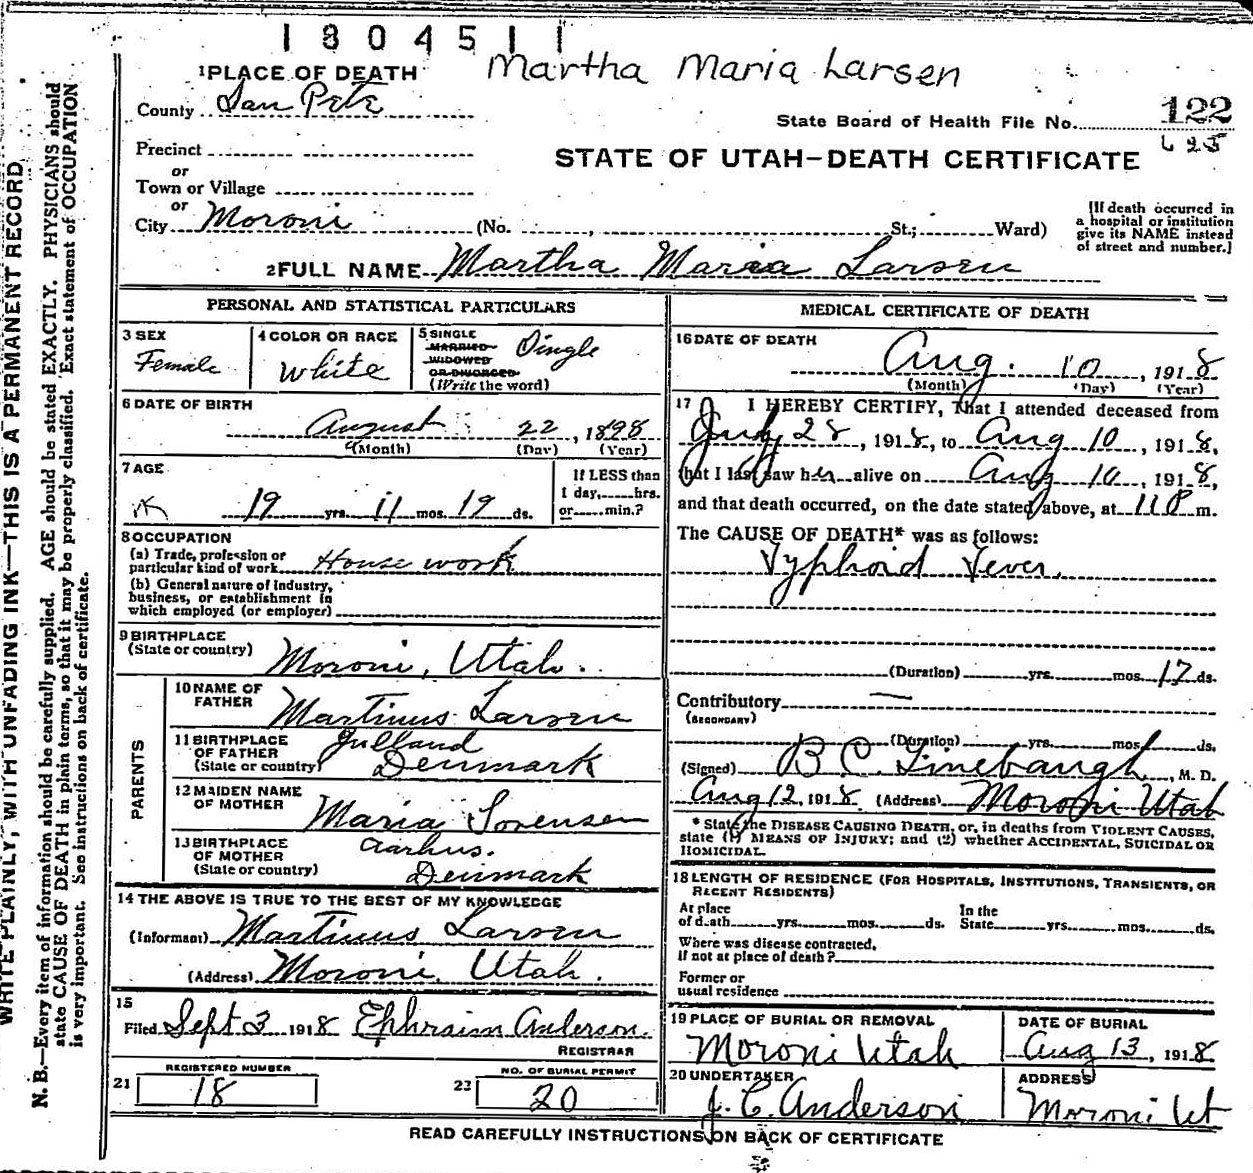 1804511
Martha Maria Larsen
1 PLACE OF DEATH
County San Pete
State Board of Health File No. 122
625
Precinct
STATE OF UTAH—DEATH CERTIFICATE
or
Town or Village
or
City Moroni (No. , St.; Ward)
[If death occurred in
a hospital or institution
give its NAME instead
of street and number.]
2 FULL NAME Martha Maria Larsen
PERSONAL AND STATISTICAL PARTICULARS
3 SEX
Female
4 COLOR OR RACE
White
5 SINGLE
MARRIED
WIDOWED
OR DIVORCED
(Write the word)
Single
6 DATE OF BIRTH
August 22, 1898
(Month) (Day) (Year)
7 AGE
19 yrs. 11 mos. 19 ds.
If LESS than
1 day, hrs.
or min.?
8 OCCUPATION
(a) Trade, profession or
particular kind of work House work
(b) General nature of industry,
business, or establishment in
which employed (or employer)
9 BIRTHPLACE
(State or country) Moroni, Utah.
PARENTS
10 NAME OF
FATHER Martinus Larsen
11 BIRTHPLACE
OF FATHER
(State or country) Jylland
Denmark
12 MAIDEN NAME
OF MOTHER Maria Sorensen
13 BIRTHPLACE
OF MOTHER
(State or country) Aarhus.
Denmark
14 THE ABOVE IS TRUE TO THE BEST OF MY KNOWLEDGE
(Informant) Martinus Larsen
(Address) Moroni, Utah.
15
Filed Sept 3 1918 Ephraim Anderson.
REGISTRAR
21 REGISTERED NUMBER
18
22 NO. OF BURIAL PERMIT
20
MEDICAL CERTIFICATE OF DEATH
16 DATE OF DEATH
Aug. 10, 1918
(Month) (Day) (Year)
17 I HEREBY CERTIFY, That I attended deceased from
July 28, 1918, to Aug 10, 1918,
that I last saw her alive on Aug 10, 1918,
and that death occurred, on the date stated above, at 11 P m.
The CAUSE OF DEATH* was as follows:
Typhoid Fever.
(Duration) yrs. mos. 17 ds.
Contributory —
(SECONDARY)
(Duration) yrs. mos. ds.
(Signed) B C. Linebaugh, M. D.
Aug 12, 1918 (Address) Moroni Utah
* State the DISEASE CAUSING DEATH, or, in deaths from VIOLENT CAUSES,
state (1) MEANS OF INJURY; and (2) whether ACCIDENTAL, SUICIDAL OR
HOMICIDAL.
18 LENGTH OF RESIDENCE (FOR HOSPITALS, INSTITUTIONS, TRANSIENTS, OR
RECENT RESIDENTS)
At place
of death yrs. mos. ds.
In the
State yrs. mos. ds.
Where was disease contracted,
if not at place of death?
Former or
usual residence
19 PLACE OF BURIAL OR REMOVAL
Moroni Utah
DATE OF BURIAL
Aug 13, 1918
20 UNDERTAKER
J. C. Anderson
ADDRESS
Moroni Ut
READ CAREFULLY INSTRUCTIONS ON BACK OF CERTIFICATE
WRITE PLAINLY, WITH UNFADING INK—THIS IS A PERMANENT RECORD
N. B.—Every item of information should be carefully supplied. AGE should be stated EXACTLY. PHYSICIANS should
state CAUSE OF DEATH in plain terms, so that it may be properly classified. Exact statement of OCCUPATION
is very important. See instructions on back of certificate.